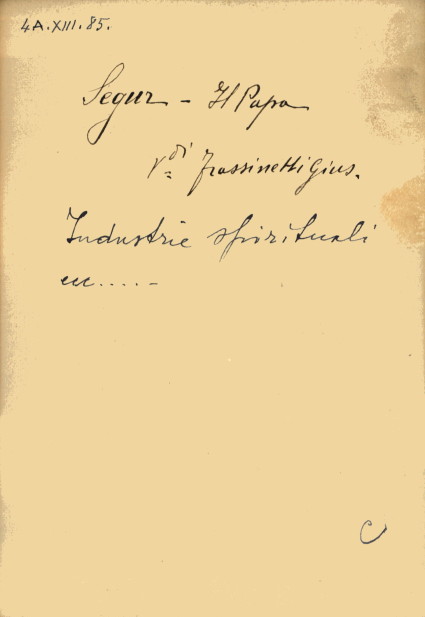 4A.XIII.85.
Segur - Il Papa
Vdi Frassinetti Gius.
Industrie spirituali
ecc.....-
C